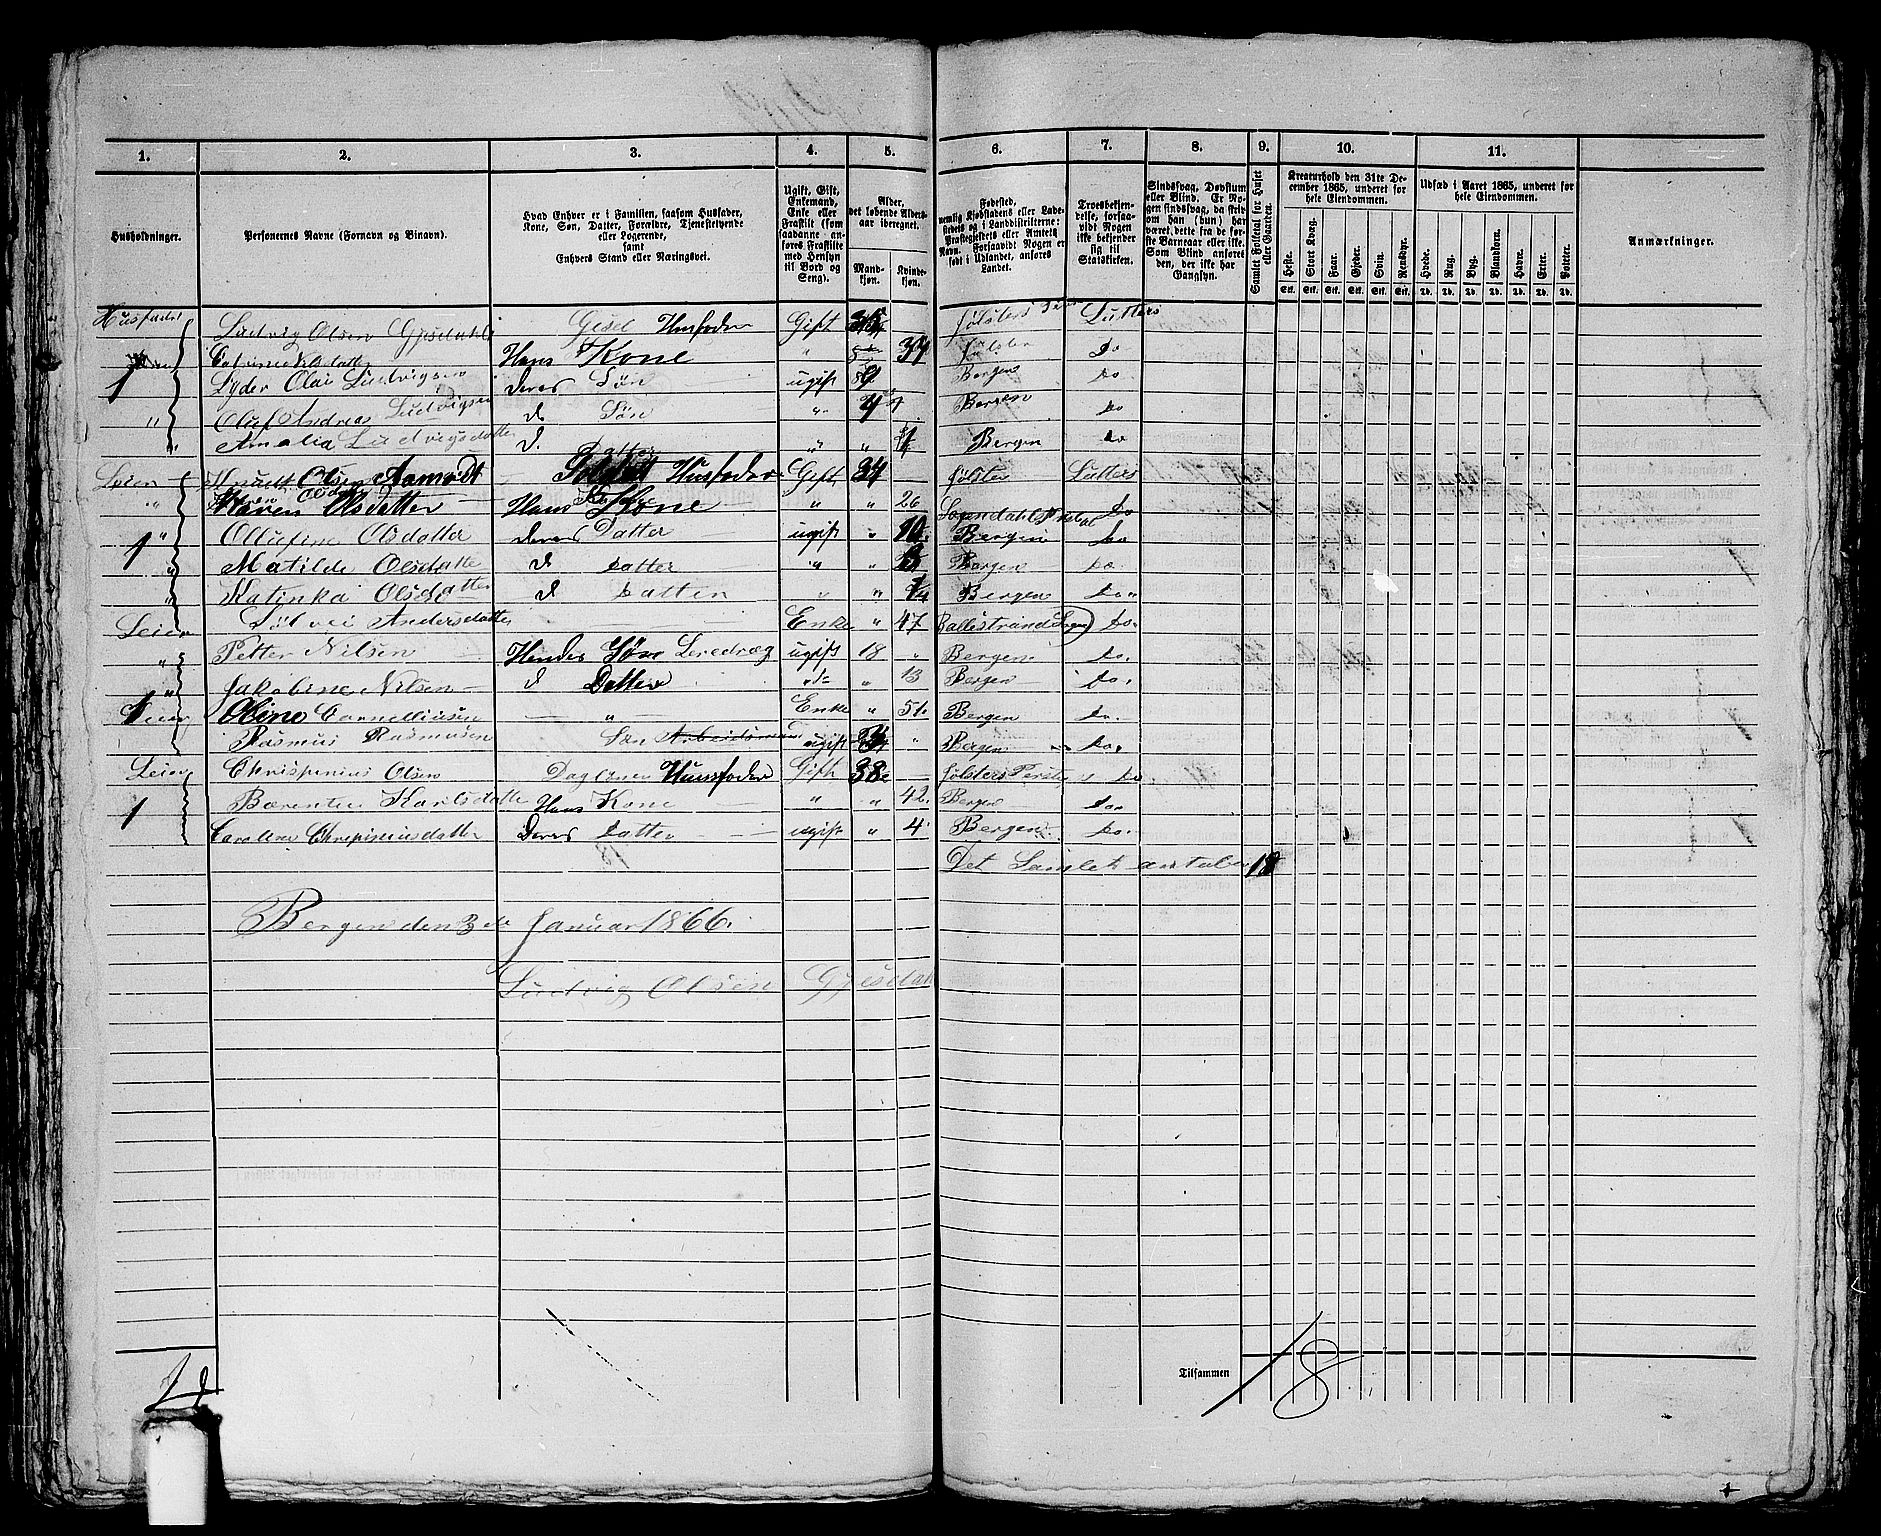 1. 2. 3. 4. 5. 6. 7. 8. 9. 10. 11.
Husholdninger.
Personernes Navne (Fornavn og Binavn).
Hvad Enhver er i Familien, saasom Husfader,
Kone, Søn, Datter, Forældre, Tjenestetyende
eller Logerende,
samt
Enhvers Stand eller Næringsvei.
Ugift, Gift,
Enkemand,
Enke eller
Fraskilt (som
saadanne an-
føres Fraskilte
med Hensyn
til Bord og
Seng).
Alder,
det løbende Alders-
aar iberegnet.
Mand-
kjøn.
Kvinde-
kjøn.
Fødested,
nemlig Kjøbstadens eller Lade-
stedets og i Landdistrikterne:
Præstegjeldets eller Amtets
Navn. Forsaavidt Nogen er
født i Udlandet, anføres
Landet.
Troesbekjen-
delse, forsaa-
vidt Nogen
ikke bekjender
sig til
Statskirken.
Sindssvag, Døvstum
eller Blind. Er No-
gen sindssvag, da skriv
om han (hun) har
været dette fra de før-
ste Barneaar eller ikke.
Som Blind anføres
den, der ikke har
Gangsyn.
Samlet Folketal for Huset
eller Gaarden.
Kreaturhold den 31te De-
cember 1865, underet for
hele Eiendommen.
Heste. Stort Kvæg. Faar. Gjeder. Svin. Rensdyr.
Stk. Stk. Stk. Stk. Stk. Stk.
Udsæd i Aaret 1865, underet for
hele Eiendommen.
Hvede. Rug. Byg. Blandkorn. Havre. Erter. Poteter.
Td. Td. Td. Td. Td. Td. Td.
Anmærkninger.
Husfader Ludvig Olsen Gjesdahl Husfader Gift Jølster Lutters
Nilsdatter Hans Kone " 37 Jølster Do
1 Lyder Olai Ludvigsen Deres Søn ugift 9 Bergen Do
" Oluf Andreas Ludvigsen d Søn " 4 Bergen Do
" Amalia Ludvigsdatter d. Datter " " 1 Bergen Do
Leier Knudt Olsen Husfader Gift 34 Jølster Lutters
" Karen Olsdatter Hans Kone " " 26 Do
" Ollufine Olsdatter Deres Datter ugift " 10 Bergen Do
1 " Matilde Olsdatte d Datter " " Bergen Do.
" Katinka Olsdatter d Datter " " Bergen Do "
Leier Andersdatter Enke " 47 Ballestrand Do.
" Petter Nilsen Hendes Søn ugift 18 " Bergen Do.
" Jakobine Nilsen d Datter " 13 Bergen Do.
Leier Oline Corneliusen " Enke " 51. Bergen Do.
1 Rasmus Rasmusen Søn Arbeidsmand ugift " Bergen Do.
Leier Chrispinius Olsen Husfader Gift 38 Jølsters Do
1 Bærentte Karlsdatte Hans Kone " " 42. Bergen Do.
Caroline Chrispiniusdatter Deres Datter ugift " 4 Bergen Do.
Det Samlet antal 18
Bergen den 3de Januar 1866.
Ludvig Olsen Gjesdal
Tilsammen 18